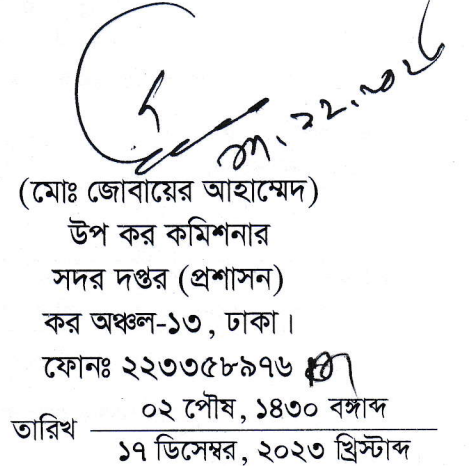 (মোঃ জোবায়ের আহাম্মেদ)
উপ কর কমিশনার
সদর দপ্তর (প্রশাসন)
কর অঞ্চল-১৩, ঢাকা।
ফোনঃ ২২৩৩৫৮৯৭৬
তারিখ
০২ পৌষ, ১৪৩০ বঙ্গাব্দ
১৭ ডিসেম্বর, ২০২৩ খ্রিস্টাব্দ